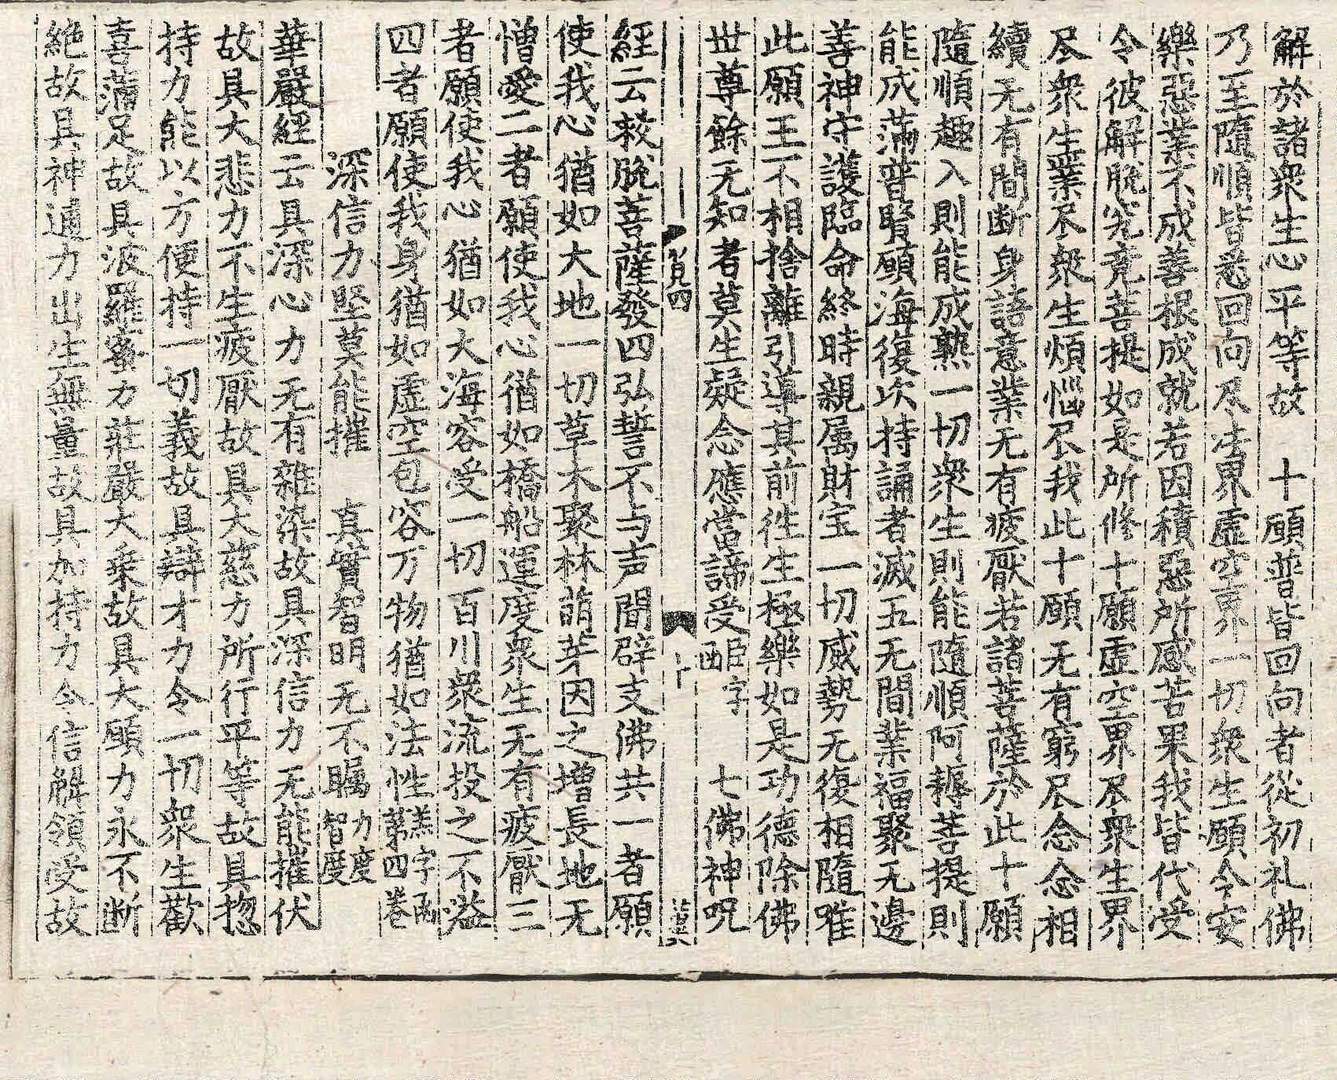 解於諸衆生心平等故　十願普皆回向者從初礼佛
乃至隨順皆悉回向尽法界虛空界一切衆生願令安
樂惡業不成善根成就若因積惡所感苦果我皆代受
令彼解脫究竟菩提如是所修十願虛空界尽衆生界
尽衆生業尽衆生煩惱尽我此十願无有窮尽念念相
續无有間断身語意業无有疲厭若諸菩薩於此十願
隨順趣入則能成熟一切衆生則能隨順阿耨菩提則
能成滿普賢願海復次持誦者滅五无間業福聚无邊
善神守護臨命終時親属財宝一切威勢无復相隨唯
此願王不相捨離引導其前徃生極樂如是功德除佛
世尊餘无知者莫生疑念應當諦受
字　七佛神呪
四
十
經云救脫菩薩發四弘誓不与声聞辟支佛共一者願
使我心猶如大地一切草木聚林萌芽因之增長地无
憎愛二者願使我心猶如橋船運度衆生无有疲厭三
者願使我心猶如大海容受一切百川衆流投之不溢
四者願使我身猶如虛空包容万物猶如法性羔字函
第四卷
深信力堅莫能摧　真實智明无不矚力度
智度
華嚴經云具深心力无有雜染故具深信力无能摧伏
故具大悲力不生疲厭故具大慈力所行平等故具揔
持力能以方便持一切義故具辯才力令一切衆生歡
喜滿足故具波羅蜜力莊嚴大乘故具大願力永不断
絶故具神通力出生無量故具加持力令信解領受故